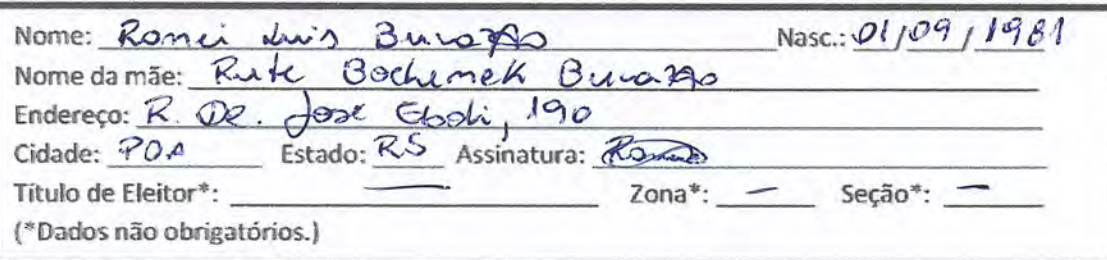 Nome: Romei Luis Nasc.: 01/09/1981
Nome da mãe: Rute
Endereço: R. DR. José Eboli, 190
Cidade: POA Estado: RS Assinatura:
Título de Eleitor*: — Zona*: — Seção*: —
(*Dados não obrigatórios.)